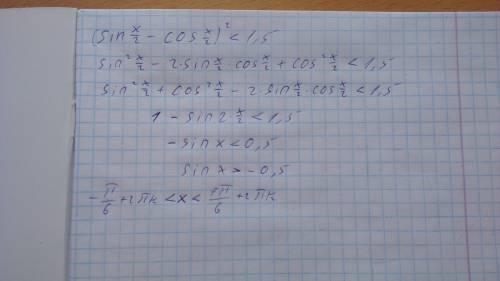 (sin x/2 - cos x/2)² < 1,5
sin² x/2 - 2·sin x/2 · cos x/2 + cos² x/2 < 1,5
sin² x/2 + cos² x/2 - 2·sin x/2 · cos x/2 < 1,5
1 - sin 2·x/2 < 1,5
- sin x < 0,5
sin x > -0,5
-π/6 + 2πk < x < 7π/6 + 2πk